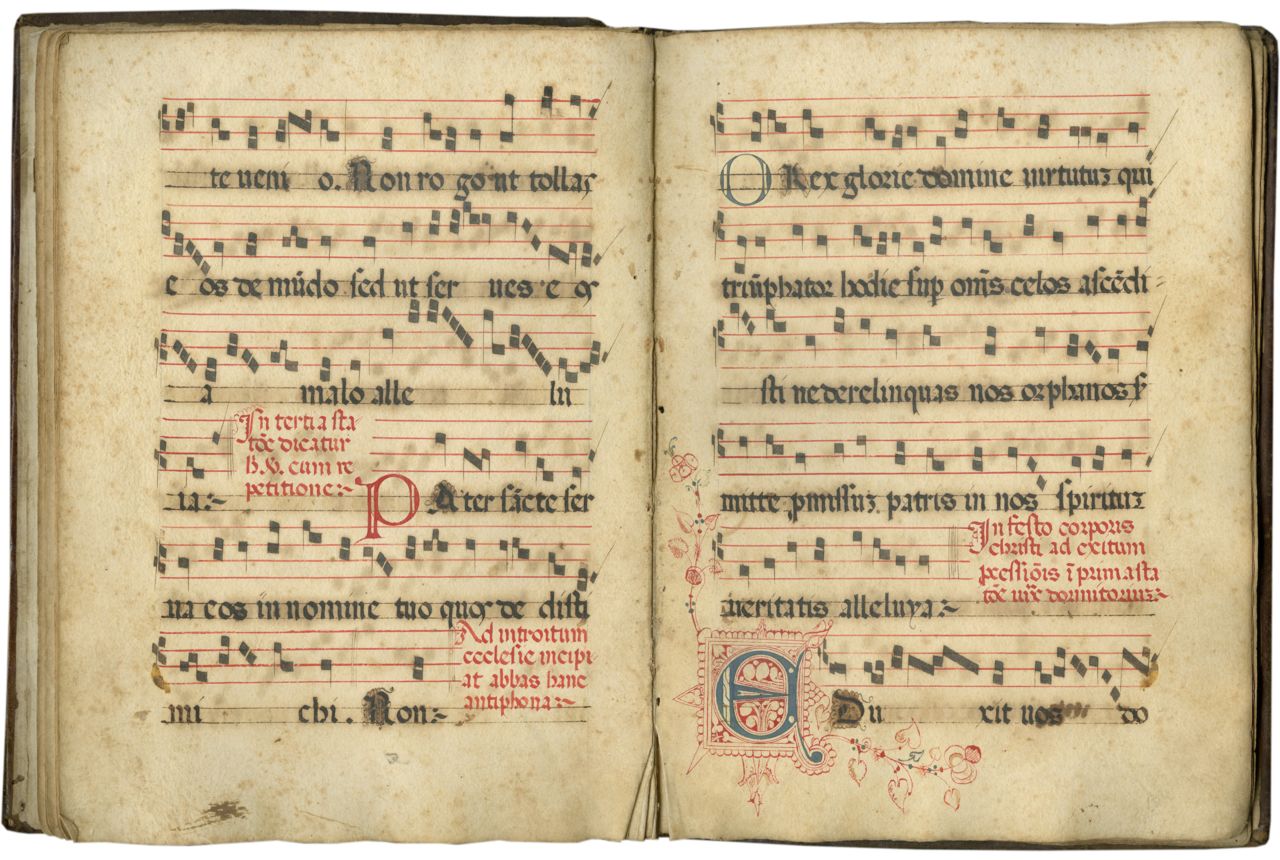 te veni o. Non ro go vt tollas
e os de mūdo sed ut ser ves e os
a malo alle lu
In tertia sta
tōe dicatur
h. V. cum re
petitione
ia. P A ter sācte ser
va eos in nomine tuo quos de disti
Ad introitum
ecclesie incipi
at abbas hanc
antiphona
mi chi. Non
O Rex glorie domine virtutuz qui
triūphator hodie sup om̄s celos ascēdi
sti ne derelinquas nos orphanos s̄
mitte pmissuz patris in nos spirituz
In festo corporis
christi ad exitum
pcessiōis ī prima sta
tōe
veritatis alleluya
E Du xit vos do